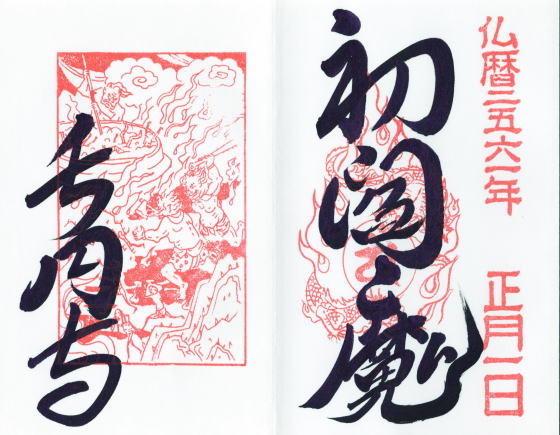 仏暦二五六一年 正月一日
初閻魔
長円寺